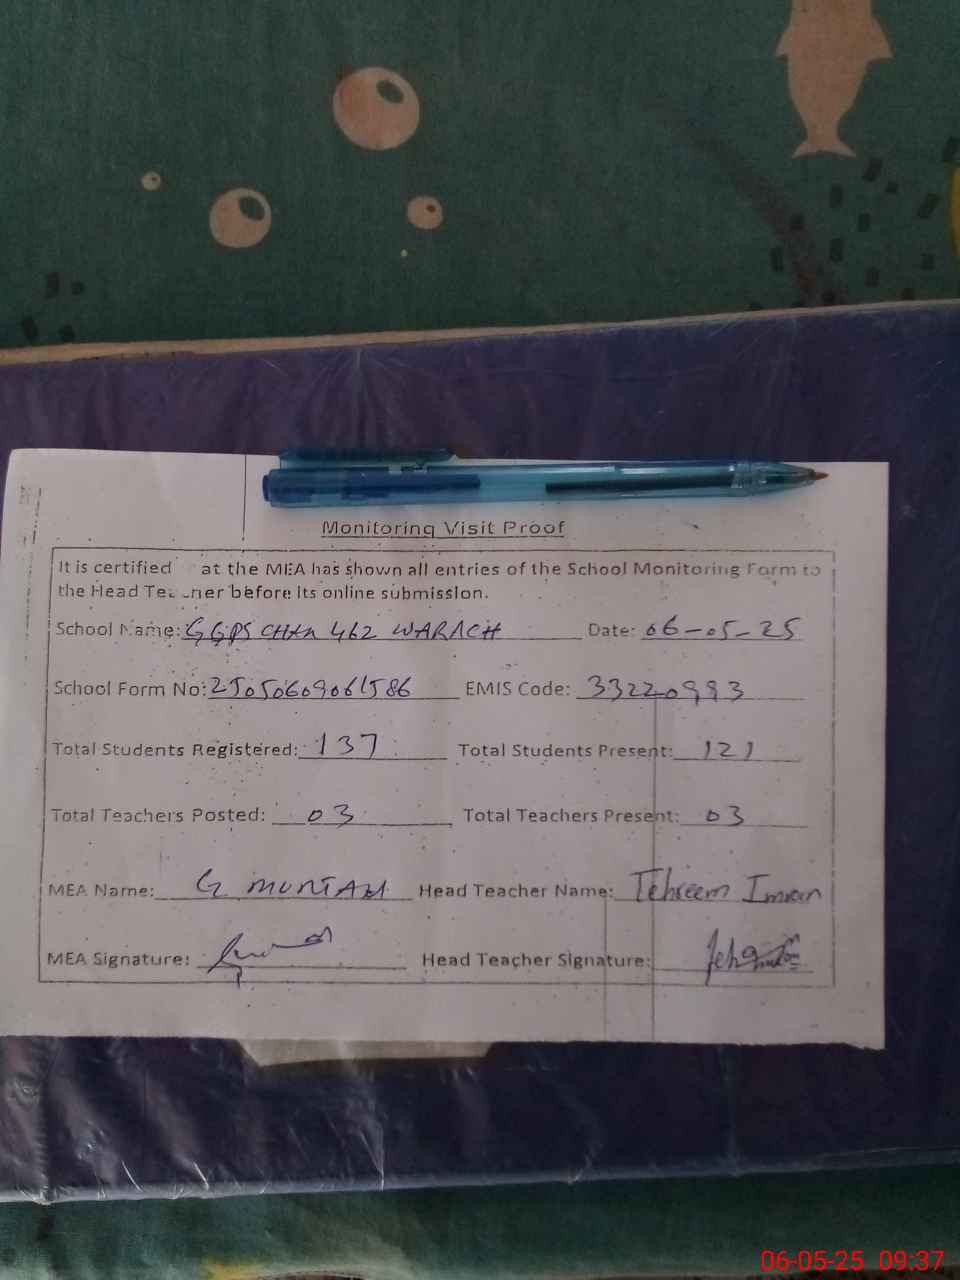 Monitoring Visit Proof
It is certified at the MEA has shown all entries of the School Monitoring Form to
the Head Teacher before its online submission.
School Name: GGPS CHAK 462 WARACH Date: 06-05-25
School Form No: EMIS Code: 33220993
Total Students Registered: 137 Total Students Present: 121
Total Teachers Posted: 03 Total Teachers Present: 03
MEA Name: G Head Teacher Name: Tehreem Imran
MEA Signature: Head Teacher Signature:
06-05-25 09:37